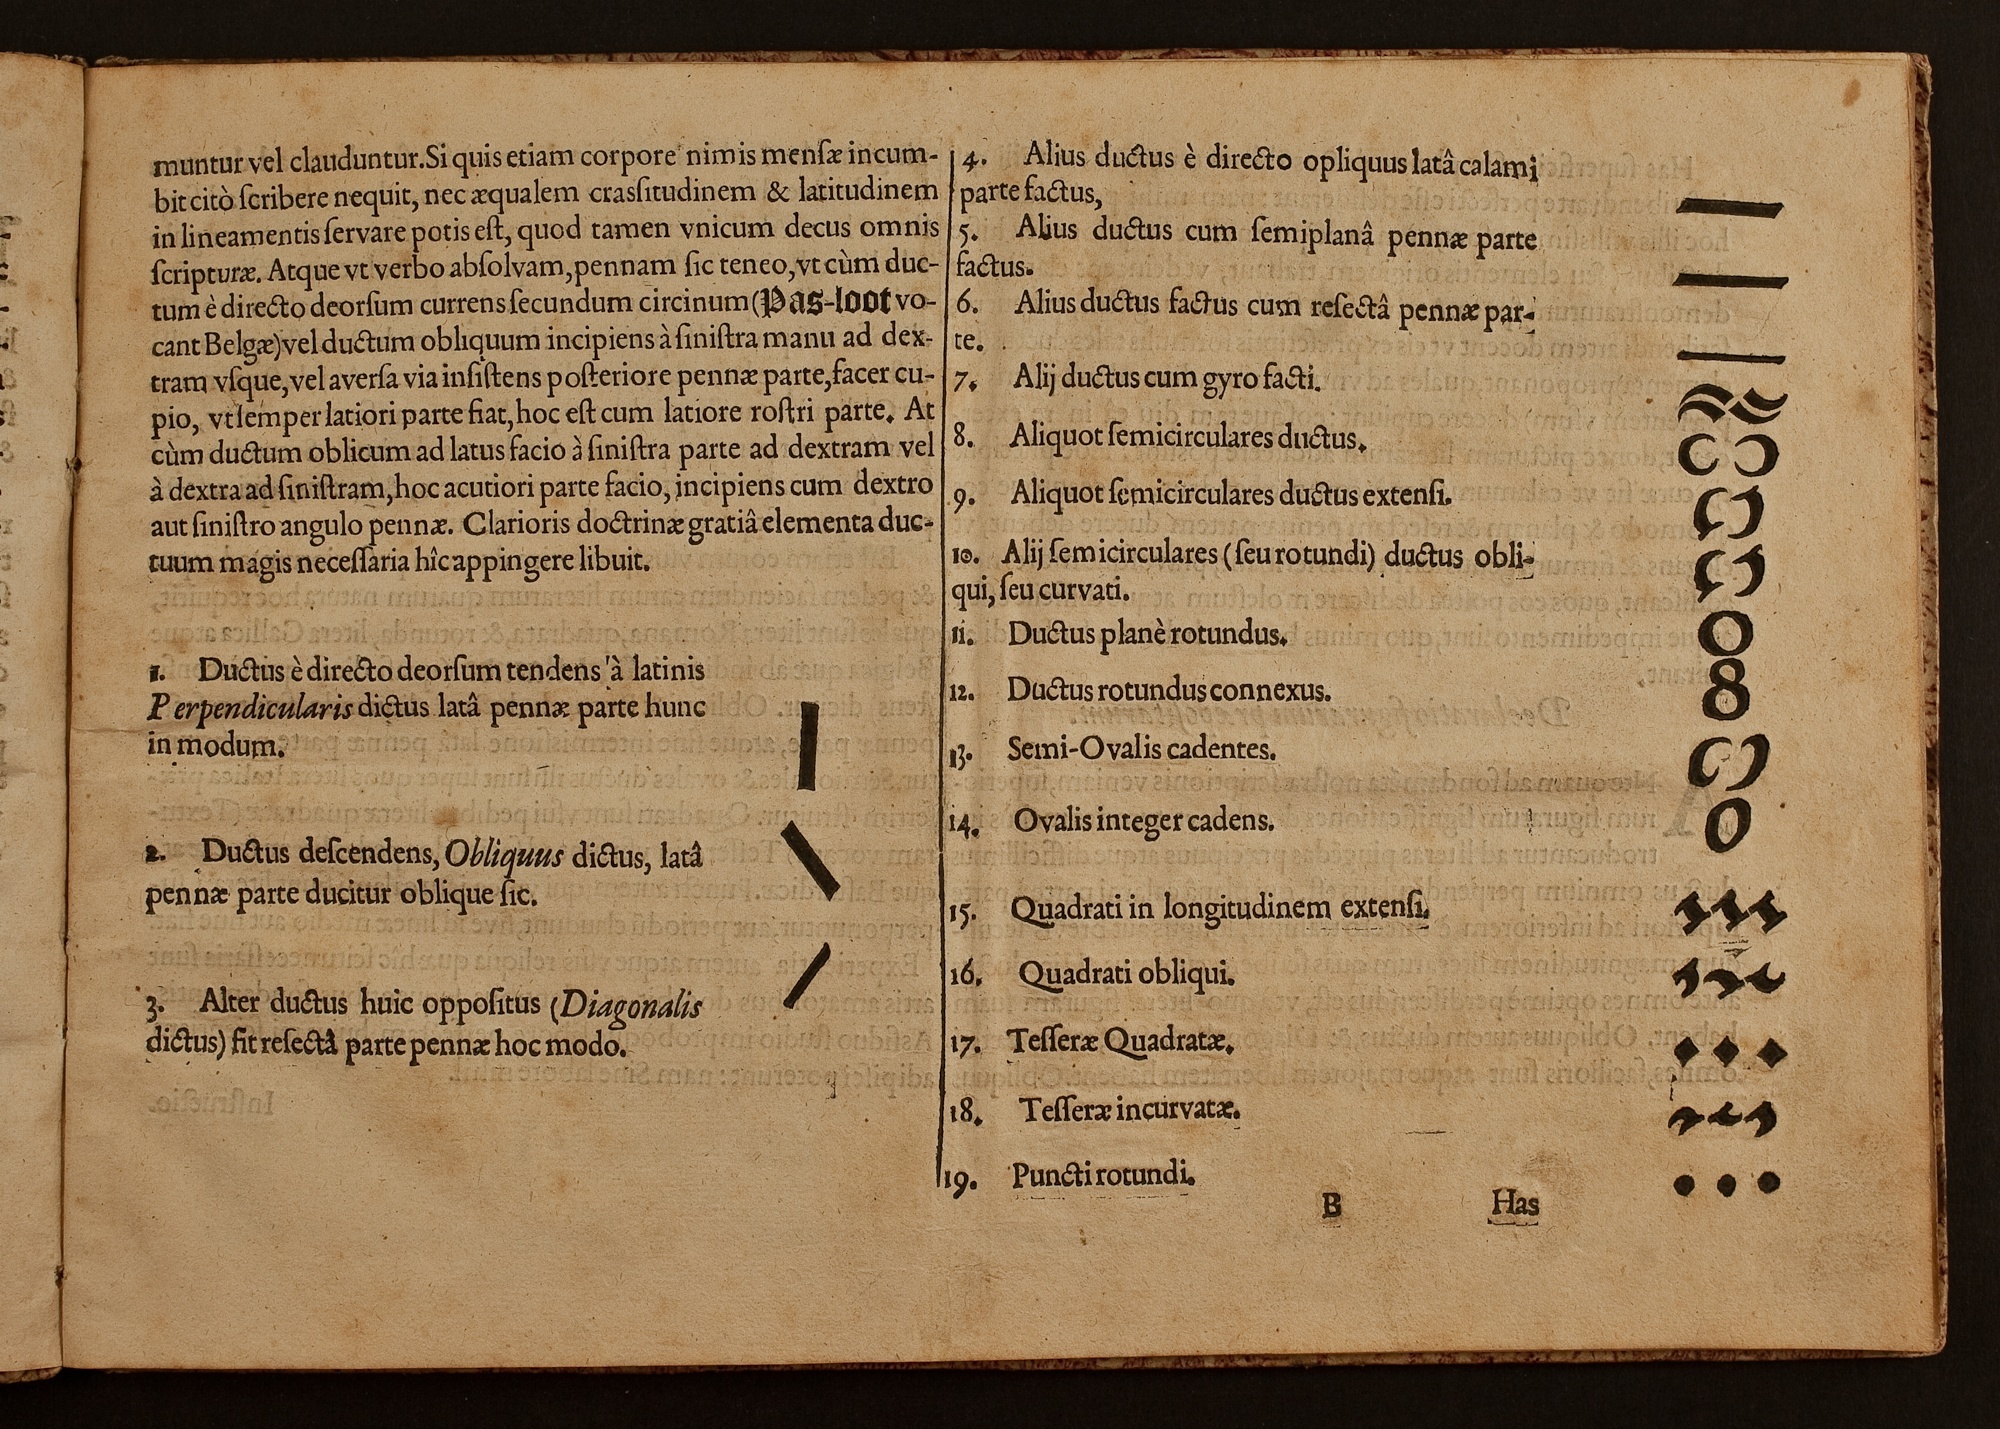 muntur vel clauduntur. Si quis etiam corpore nimis menſæ incum-
bit citò ſcribere nequit, nec æqualem craſsitudinem & latitudinem
in lineamentis ſervare potis eſt, quod tamen vnicum decus omnis
ſcripturæ. Atque vt verbo abſolvam, pennam ſic teneo, vt cùm duc-
tum è directo deorſum currens ſecundum circinum (Pas-loot vo-
cant Belgæ) vel ductum obliquum incipiens à ſiniſtra manu ad dex-
tram vſque, vel averſa via inſiſtens poſteriore pennæ parte, facer cu-
pio, vt ſemper latiori parte fiat, hoc eſt cum latiore roſtri parte. At
cùm ductum oblicum ad latus facio à ſiniſtra parte ad dextram vel
à dextra ad ſiniſtram, hoc acutiori parte facio, incipiens cum dextro
aut ſiniſtro angulo pennæ. Clarioris doctrinæ gratiâ elementa duc-
tuum magis neceſſaria hîc appingere libuit.
1. Ductus è directo deorſum tendens à latinis
Perpendicularis dictus latâ pennæ parte hunc
in modum.
2. Ductus deſcendens, Obliquus dictus, latâ
pennæ parte ducitur oblique ſic.
3. Alter ductus huic oppoſitus (Diagonalis
dictus) fit reſectâ parte pennæ hoc modo.
4. Alius ductus è directo opliquus latâ calami
parte factus,
5. Alius ductus cum ſemiplanâ pennæ parte
factus.
6. Alius ductus factus cum reſectâ pennæ par-
te.
7. Alij ductus cum gyro facti.
8. Aliquot ſemicirculares ductus.
9. Aliquot ſemicirculares ductus extenſi.
10. Alij ſemicirculares (ſeu rotundi) ductus obli-
qui, ſeu curvati.
11. Ductus planè rotundus.
12. Ductus rotundus connexus.
13. Semi-Ovalis cadentes.
14. Ovalis integer cadens.
15. Quadrati in longitudinem extenſi.
16. Quadrati obliqui.
17. Teſſeræ Quadratæ.
18. Teſſeræ incurvatæ.
19. Puncti rotundi.
B Has